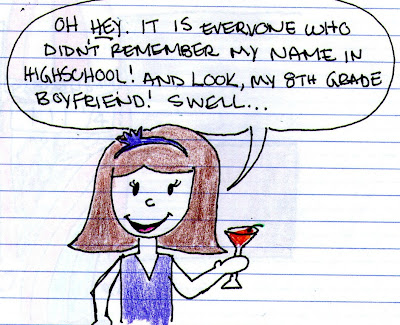 OH HEY. IT IS EVERYONE WHO
DIDN'T REMEMBER MY NAME IN
HIGHSCHOOL! AND LOOK, MY 8TH GRADE
BOYFRIEND! SWELL...